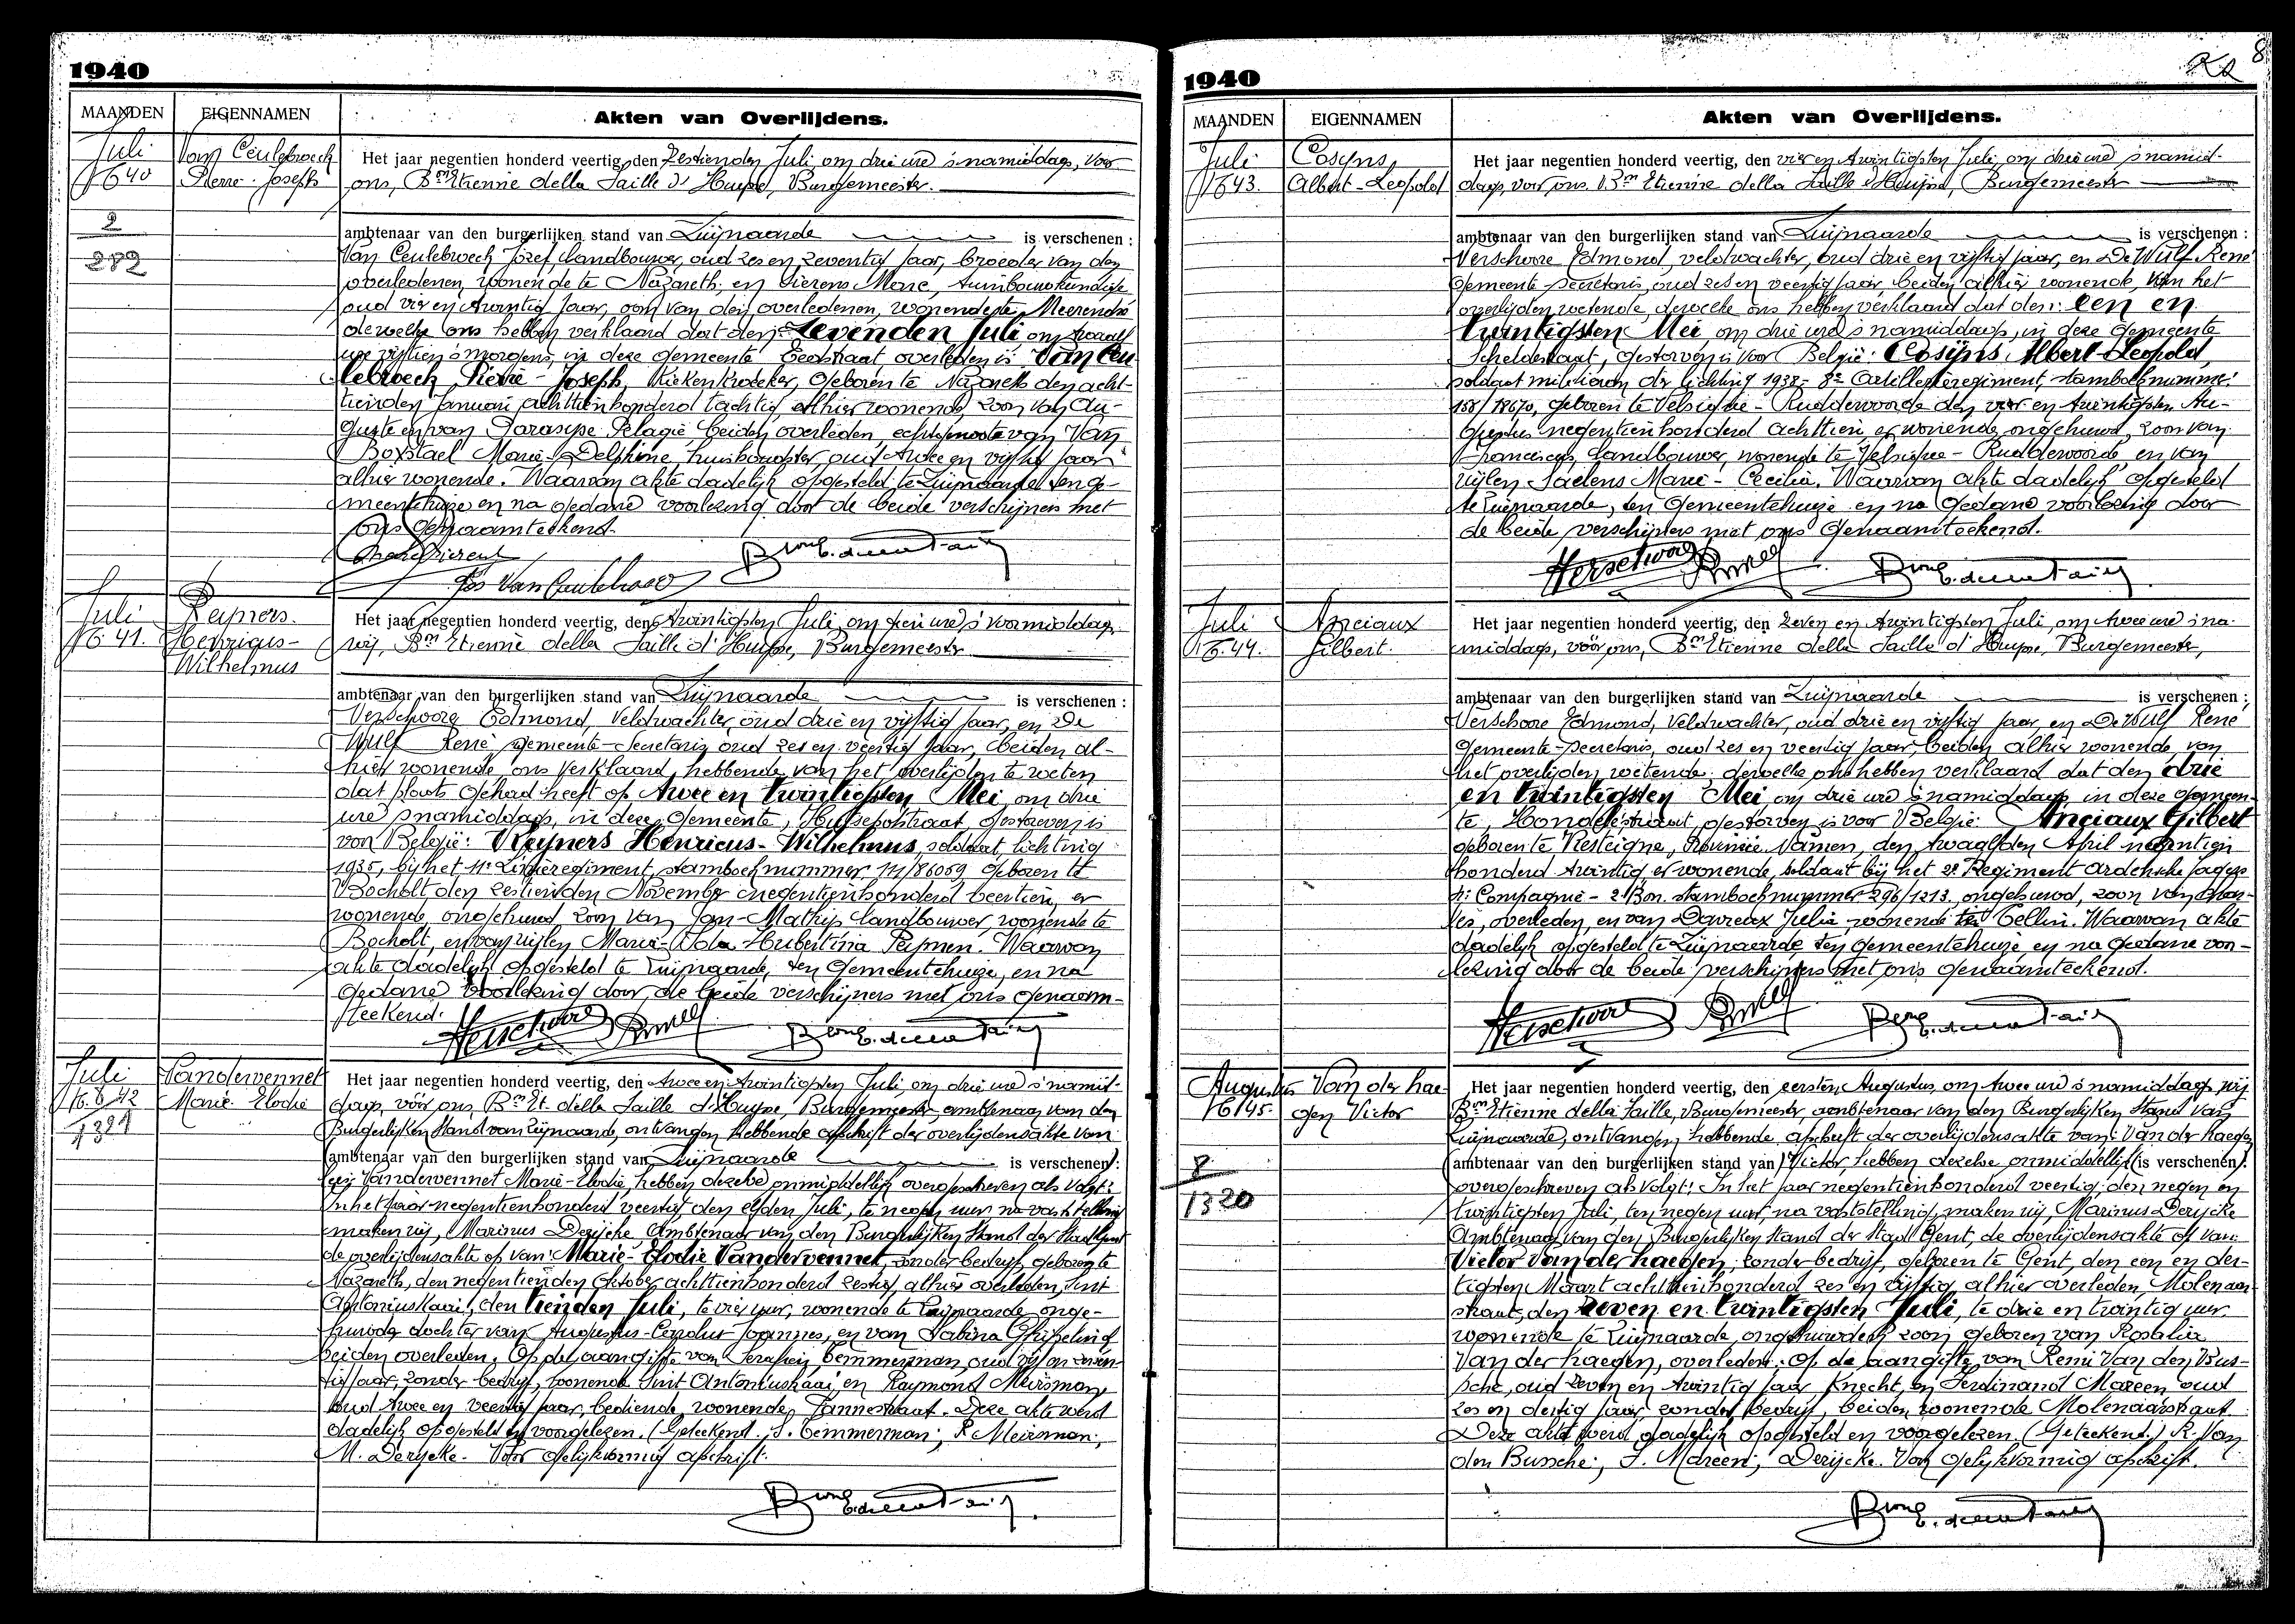 1940
MAANDEN EIGENNAMEN Akten van Overlijdens.
Juli
N° 40
Van Ceulebroeck
Pierre-Joseph
2
282
Het jaar negentien honderd veertig, den Zestienden Juli, om drie ure 's namiddags, voor
ons, Bon Etienne della Faille d'Huysse, Burgemeester.
ambtenaar van den burgerlijken stand van Zwijnaarde is verschenen :
Van Ceulebroeck Jozef, landbouwer, oud zes en zeventig jaar, broeder van den
overledenen, wonende te Nazareth; en Dierens Marc, tuinbouwkundige
oud vier en twintig jaar, oom van den overledenen, wonende te Meerendré
dewelke ons hebben verklaard dat den: Zevenden Juli, om twaalf
ure vijftien 's morgens, in deze gemeente Eedstraat, overleden is Van Ceu-
lebroeck Pierre-Joseph, Kiekenkweeker, geboren te Nazareth den acht-
tienden Januari achttienhonderd tachtig, alhier wonende, zoon van Au-
guste en van Pelagie, beiden overleden, echtgenoote van Van
Boxstael Marie-Delphine, huishoudster, oud twee en vijftig jaar
alhier wonende. Waarvan akte dadelijk opgesteld te Zwijnaarde ten ge-
meentehuize en na gedane voorlezing door de beide verschijners met
ons genaamteekend.
Jos Van Ceulebroeck
Juli
N° 41.
Reijners
Henricus-
Wilhelmus
Het jaar negentien honderd veertig, den Twintigsten Juli, om tien ure 's voormiddags,
wij, Bon Etienne della Faille d'Huysse, Burgemeester
ambtenaar van den burgerlijken stand van Zwijnaarde is verschenen :
Verschoore Edmond, Veldwachter, oud drie en vijftig jaar, en De
Wulf René, gemeente-Secretaris oud zes en veertig jaar, beiden al-
hier wonende ons verklaard hebbende van het overlijden te weten
dat plaats gehad heeft op twee en twintigsten Mei, om drie
ure 's namiddags, in deze gemeente, Hutsepotstraat, gestorven is
voor België: Reijners Henricus-Wilhelmus, soldaat, lichting
1935, bij het 11e Linieregiment, stamboeknummer 111/86059 geboren te
Bocholt den zestienden November negentienhonderd veertien, er
wonende, ongehuwd, zoon van Jan-Mathijs landbouwer, wonende te
Bocholt, en van wijlen Maria-Ida Hubertina Peijmen. Waarvan
akte dadelijk opgesteld te Zwijnaarde, ten gemeentehuize, en na
gedane voorlezing door de beide verschijners met ons genaam-
teekend.
Juli
N° 42
1381
Vandervennet
Marie-Elodie
Het jaar negentien honderd veertig, den twee en twintigsten Juli, om drie ure 's namid-
dags, voor ons, Bon Et. della Faille d'Huysse, Burgemeester, ambtenaar van den
Burgerlijken Stand van Zwijnaarde, ontvangen hebbende afschrift der overlijdensakte van
ambtenaar van den burgerlijken stand van Zwijnaarde is verschenen :
Vandervennet Marie-Elodie, hebben dezelve onmiddellijk overgeschreven als volgt:
In het jaar negentienhonderd veertig den elfden Juli, te negen uur, na vaststelling
maken wij, Marinus Derycke Ambtenaar van den Burgerlijken Stand der Stad Gent
de overlijdensakte op van: Marie-Elodie Vandervennet, zonder bedrijf, geboren te
Nazareth, den negentienden Oktober achttienhonderd zestig, alhier overleden, Sint
Antoniuskaai, den tienden Juli, te vier uur, wonende te Zwijnaarde onge-
huwde dochter van Augustus-Carolus Joannes, en van Sabina Ghijselinck
beiden overleden. Op de aangifte van Serafien Temmerman, oud vijf en zeven-
tig jaar, zonder bedrijf, wonende Sint Antoniuskaai, en Raymond Meirsman,
oud twee en veertig jaar, bediende, wonende Jannestraat. Deze akte werd
dadelijk opgesteld en voorgelezen. (Geteekend. S. Temmerman; R. Meirsman;
M. Derycke. Voor gelijkvormig afschrift.
1940
MAANDEN EIGENNAMEN Akten van Overlijdens.
Juli
N° 43.
Cosijns,
Albert-Leopold
Het jaar negentien honderd veertig, den vier en twintigsten Juli, om drie ure 's namid-
dags, voor ons, Bon Etienne della Faille d'Huysse, Burgemeester
ambtenaar van den burgerlijken stand van Zwijnaarde is verschenen :
Verschoore Edmond, veldwachter, oud drie en vijftig jaar, en De Wulf René
gemeente secretaris, oud zes en veertig jaar, beiden alhier wonende, van het
overlijden wetende, dewelke ons hebben verklaard dat den: een en
twintigsten Mei, om drie ure 's namiddags, in deze gemeente
Scheldestraat, gestorven is voor België: Cosijns Albert-Leopold,
soldaat milicien der lichting 1938 - 8e Artillerieregiment, stamboeknummer
158/18670, geboren te Velsique-Ruddershove den vier en twintigsten Au-
gustus negentienhonderd achttien, er wonende, ongehuwd, zoon van
Franciscus, landbouwer, wonende te Velsique-Ruddershove, en van
wijlen Saelens Marie-Cecilia. Waarvan akte dadelijk opgesteld
te Zwijnaarde, ten gemeentehuize en na gedane voorlezing door
de beide verschijners met ons genaamteekend.
Juli
N° 44.
Anciaux
Gilbert.
Het jaar negentien honderd veertig, den zeven en twintigsten Juli, om twee ure 's na-
middags, vóór ons, Bon Etienne della Faille d'Huysse, Burgemeester,
ambtenaar van den burgerlijken stand van Zwijnaarde is verschenen :
Verschoore Edmond, Veldwachter, oud drie en vijftig jaar, en De Wulf René
gemeente-secretaris, oud zes en veertig jaar, beiden alhier wonende, van
het overlijden wetende, dewelke ons hebben verklaard dat den drie
en twintigsten Mei om drie ure 's namiddags in deze gemeen-
te, Hondelestraat, gestorven is voor België: Anciaux Gilbert
geboren te Resteigne, Provincie Namen, den twaalfden April negentien
honderd twintig, er wonende, soldaat bij het 2e Regiment Ardensche Jagers
Compagnie - 2e Bon. stamboeknummer 296/1213, ongehuwd, zoon van Char-
les, overleden, en van Devreux Julia, wonende te Tellin. Waarvan akte
dadelijk opgesteld te Zwijnaarde ten gemeentehuize en na gedane voor-
lezing door de beide verschijners met ons genaamteekend.
Augustus
N° 45.
Van der hae-
gen Victor
8
1320
Het jaar negentien honderd veertig, den eersten Augustus, om twee ure 's namiddags, wij
Bon Etienne della Faille, Burgemeester, ambtenaar van den Burgerlijken Stand van
Zwijnaarde, ontvangen hebbende afschrift der overlijdensakte van: Van der haegen
ambtenaar van den burgerlijken stand van Victor, hebben dezelve onmiddellijk (is verschenen) :
overgeschreven als volgt: In het jaar negentienhonderd veertig den negen en
twintigsten Juli, ten negen uur, na vaststelling, maken wij, Marinus Derijcke
Ambtenaar van den Burgerlijken Stand der Stad Gent, de overlijdensakte op van:
Victor Van der haegen, zonder bedrijf, geboren te Gent, den een en der-
tigsten Maart achttienhonderd zes en vijftig, alhier overleden, Molenaar-
straat, den zeven en twintigsten Juli, te drie en twintig uur
wonende te Zwijnaarde, ongehuwde zoon geboren van Rosalia
Van der haegen, overleden. Op de aangifte van Remi Van den Bus-
sche, oud zeven en twintig jaar, knecht, en Ferdinand Mareen, oud
zes en dertig jaar, zonder bedrijf, beiden wonende Molenaarstraat.
Deze akte werd dadelijk opgesteld en voorgelezen. (Geteekend.) R. Van
den Bussche; F. Mareen; Derijcke. Voor gelijkvormig afschrift.